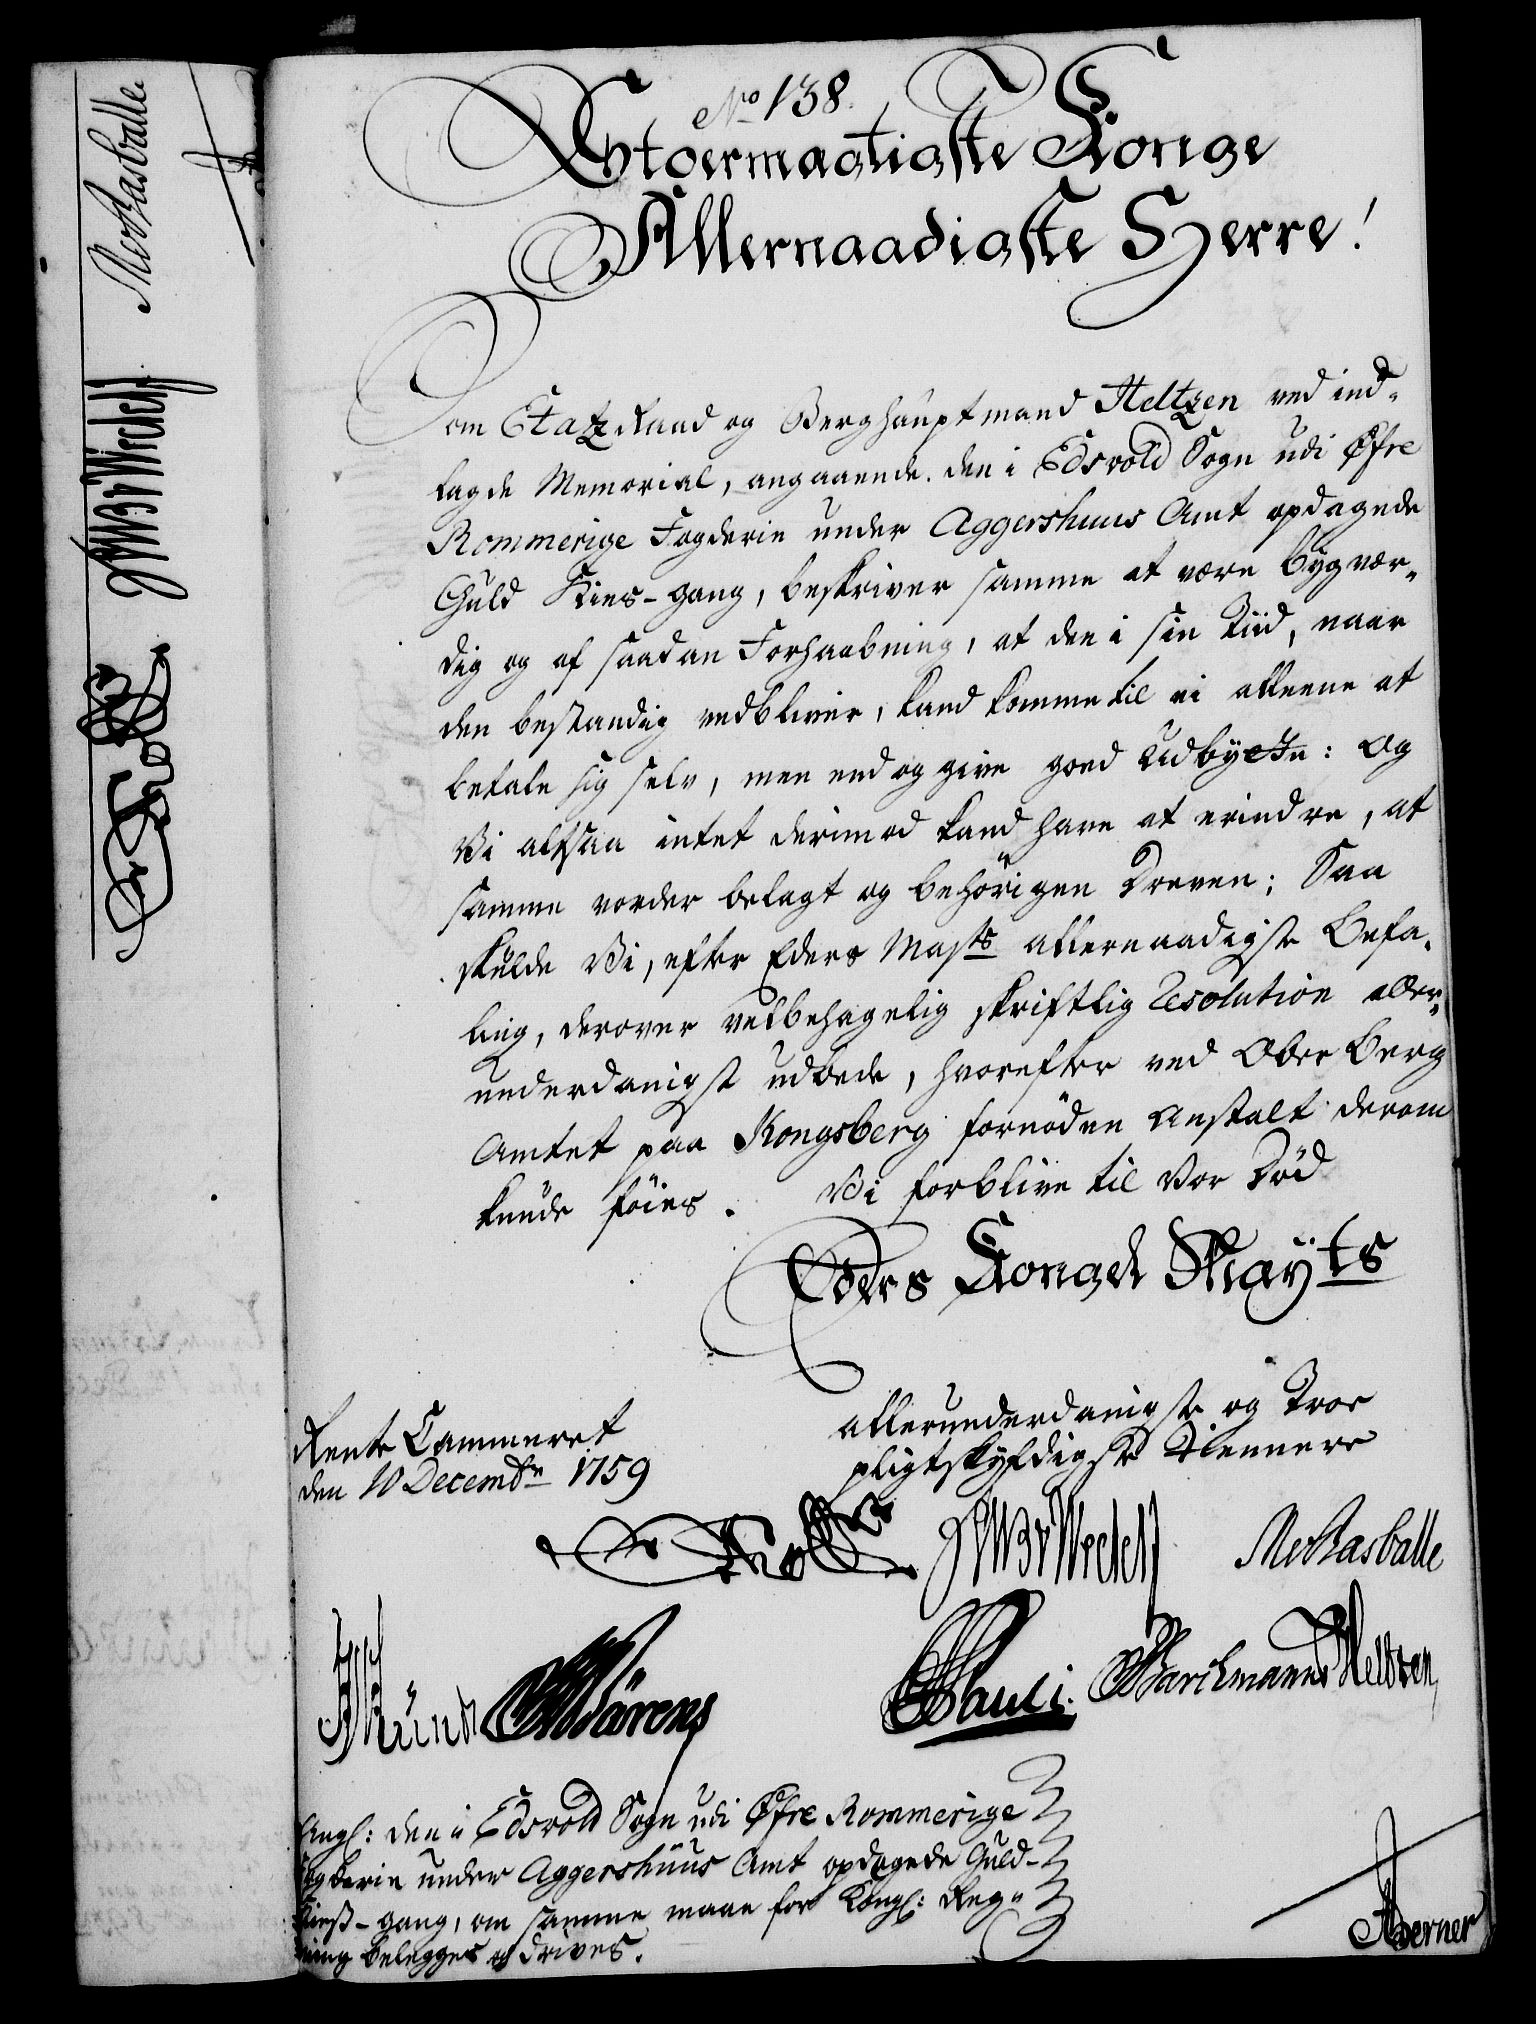 No 138.
Stoermægtigste Konge
Allernaadigste Herre!
Som Etatz Raad og Berghauptmand Heltzen ved ind-
tagde Memorial, angaaende den i Edsvold Sogn udi Øfre
Rommerige Fogderie under Aggershuus Amt opdagede
Guld Kies-gang, beskriver samme at være bygvær-
dig og af saadan Forhaabning, at den i sin Tiid, naar
den bestandig vedbliver, kand komme til ei alleene at
betale sig selv, men endog give goed Udbytte: Og
Vi altsaa intet derimod kand have at erindre, at
samme vorder belagt og behörigen Dreven; Saa
skulde Vi, efter Eders Mayts allernaadigste Befa-
ling, derover velbehagelig skriftlig Resolution aller-
underdanigst udbede, hvorefter ved Ober Berg
Amtet paa Kongsberg fornöden Anstalt derom
kunde föies. Vi forblive til Vor Död
Eders Kongel Mayts
allerunderdanigste og Troe
pligtskyldigste Tienere
Rente Cammeret
den 10 Decembr 1759
Holst JWBvWedelf Mehasballe
JMünt Mörens Pauli. Barchmann Heltzen
Angl: den i Edsvold Sogn udi Øfre Rommerige
Fogderie under Aggershuus Amt opdagede Guld-
Kieß-gang, om samme maae for Kongl: Reg-
ning belegges og drives.
Aberner
Mehasballe
JWBvWedelf
Holst